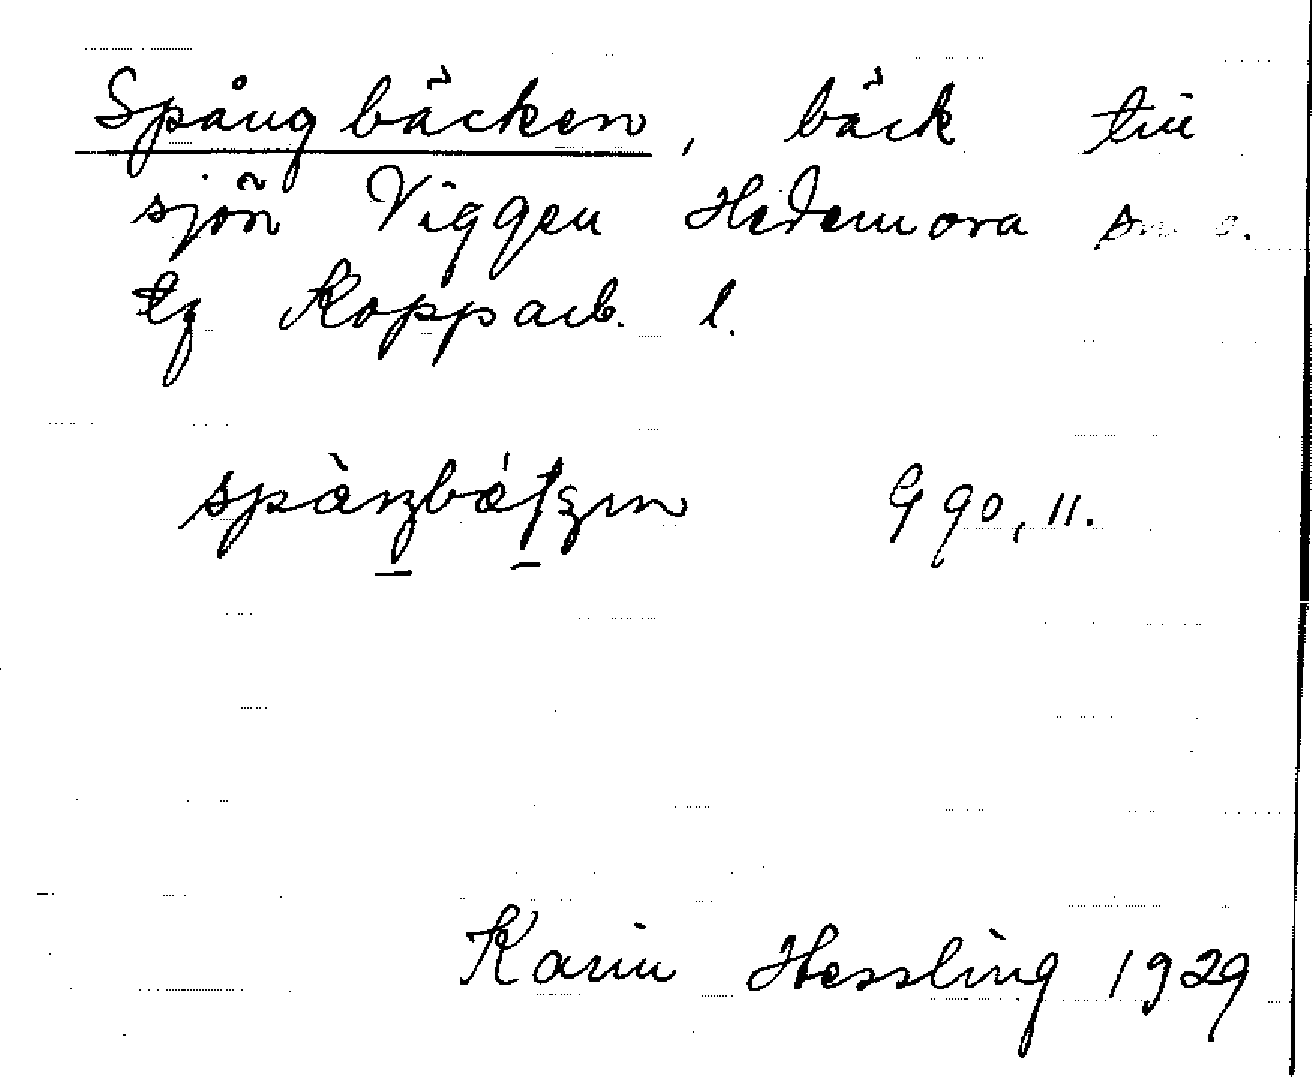 Spångbäcken, bäck till
sjön Viggen Hedemora sn o.
tg Kopparb. l.
G 90, 11.
Karin Hessling 1929